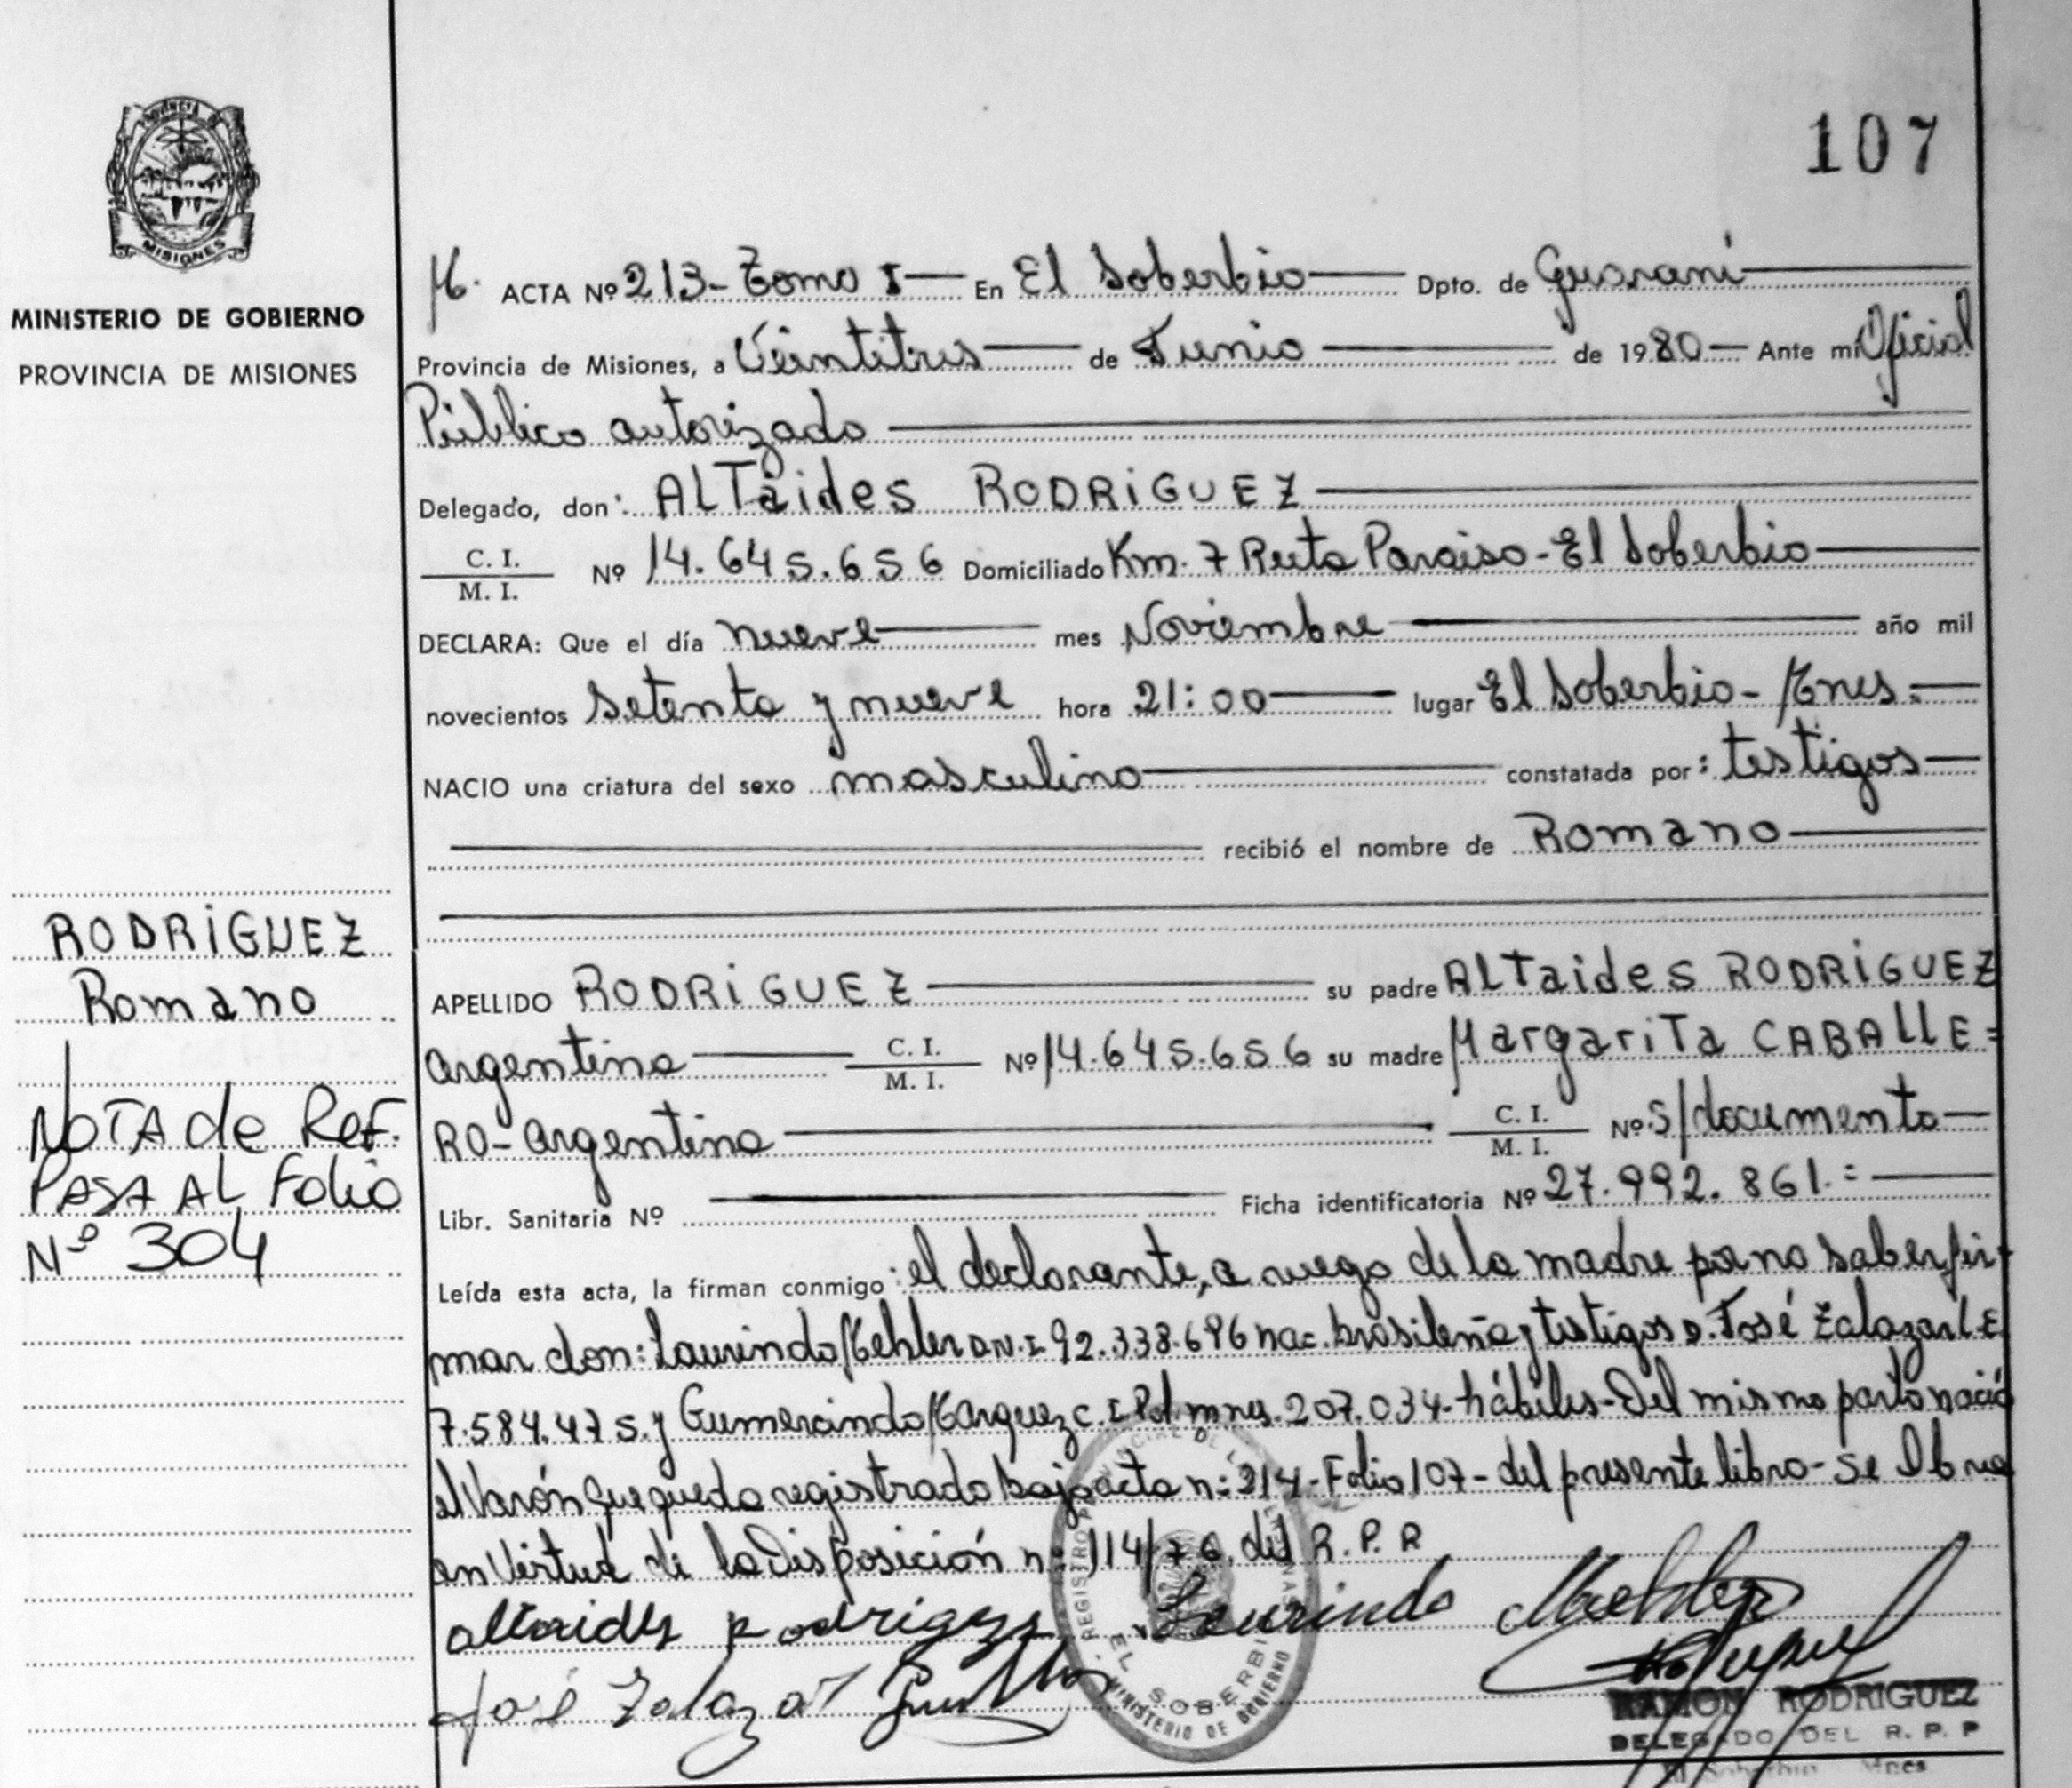 107
MISIONES
MINISTERIO DE GOBIERNO
PROVINCIA DE MISIONES
M. ACTA Nº 213- Tomo I En El Soberbio Dpto. de Guaraní
Provincia de Misiones, a Veintitres de Junio de 1980 Ante mi Oficial
Público autorizado
Delegado, don: ALTaides RODRiGUEZ
C. I.
M. I. Nº 14.645.656 Domiciliado Km. 7 Ruta Paraiso - El Soberbio
DECLARA: Que el día nueve mes Noviembre año mil
novecientos setenta y nueve hora 21:00 lugar El Soberbio - Mnes.=
NACIO una criatura del sexo masculino constatada por: testigos
recibió el nombre de Romano
RODRiGUEZ
Romano
NOTA de Ref.
PASA AL Folio
Nº 304
APELLIDO RODRiGUEZ su padre ALTaides RODRiGUEZ
argentino C. I.
M. I. Nº 14.645.656 su madre MargariTa CABALLE=
RO- argentina C. I.
M. I. Nº S/documento
Libr. Sanitaria Nº Ficha identificatoria Nº 27.992.861.=
Leída esta acta, la firman conmigo: el declarante, a ruego de la madre por no saber fir-
mar don: Laurindo Mehler D.N.I 92.338.696 nac. brasileña y testigos D. José Zalazar L E
7.584.475. y Gumercindo Marquez C. I Pol. mnes. 207.034- hábiles- Del mismo parto nació
el Varón que queda registrado bajo acta n: 214- Folio 107- del presente libro- Se labra
en Virtud de la Disposición nº 114/76. del R. P. P
altaides rodriguez Laurindo Mehler
José Zalazar
REGISTRO PROVINCIAL DE LAS PERSONAS
EL SOBERBIO
MINISTERIO DE GOBIERNO
RAMON RODRIGUEZ
DELEGADO DEL R. P. P
El Soberbio Mnes